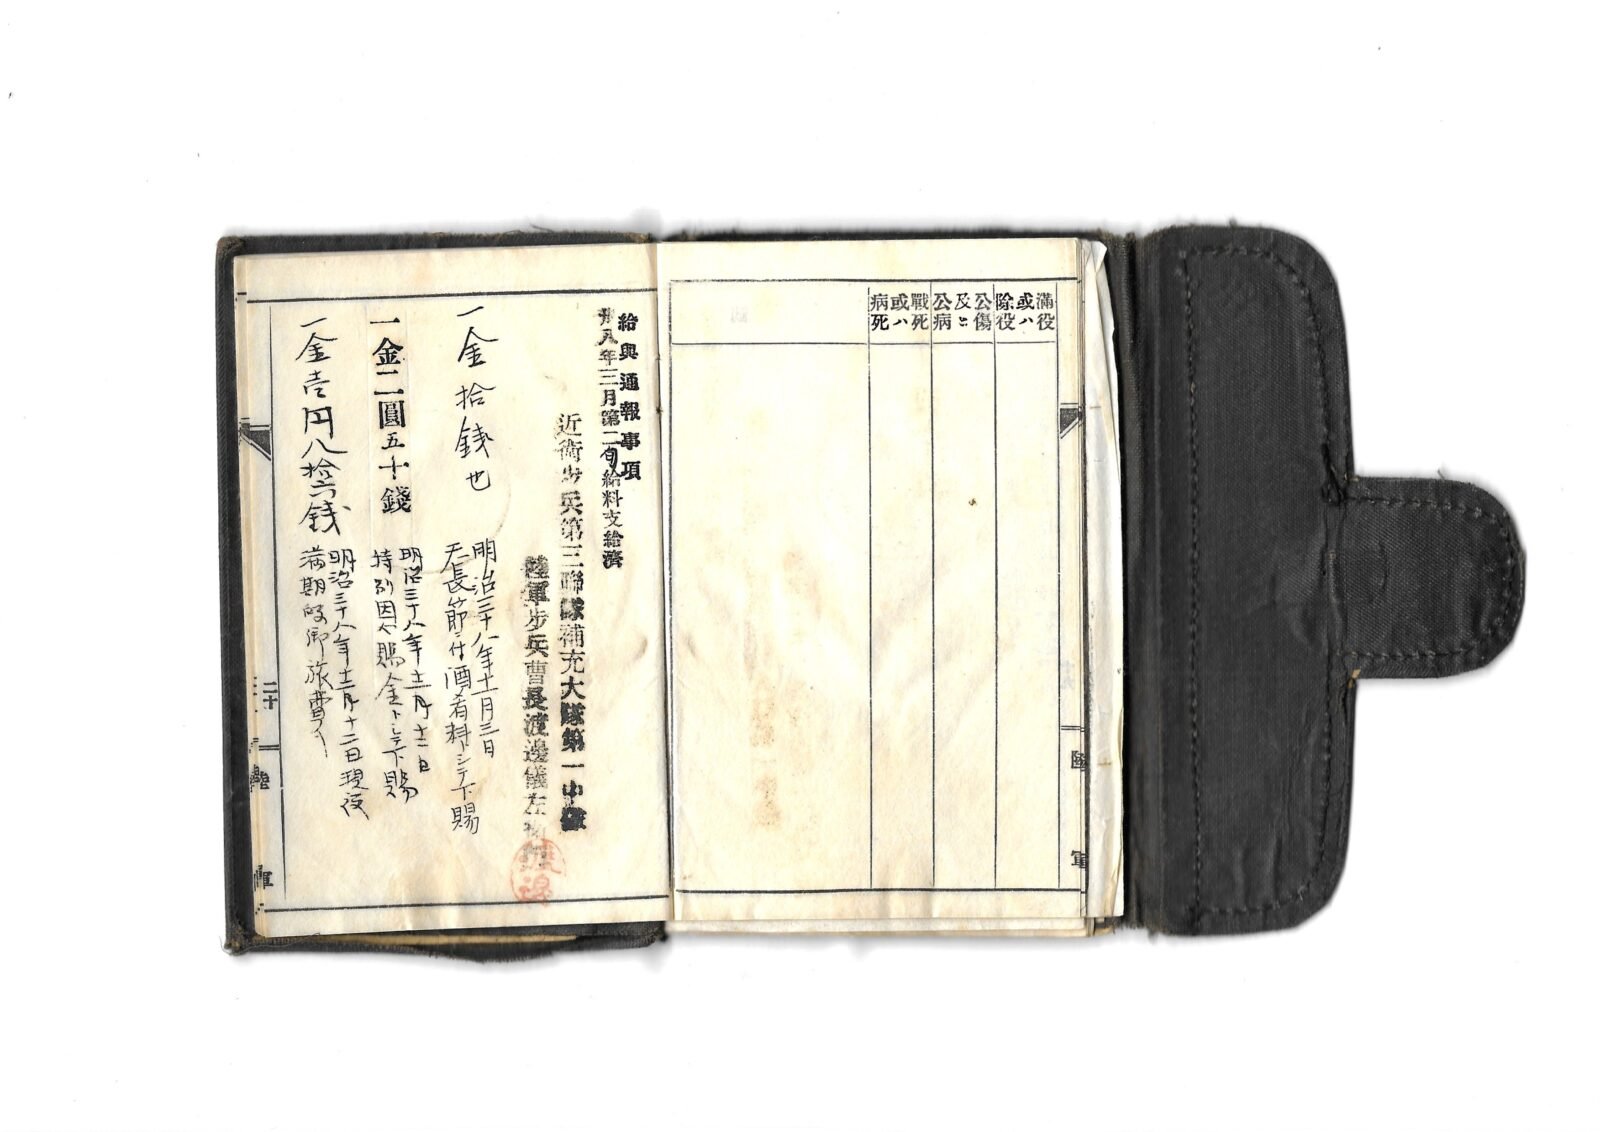 満役
或ハ
除役
公傷
及ヒ
公病
戰死
或ハ
病死
陸軍
給與通報事項
卅八年三月第二旬給料支給濟
近衛歩兵第三聯隊補充大隊第一中隊
陸軍歩兵曹長渡邊儀左衛門
渡邊
一金拾銭也
明治三十八年十一月三日
天長節ニ付酒肴料トシテ下賜
一金二圓五十錢
明治三十八年十二月十二日
特別因ヘ賜金トシテ下賜
一金壱円八拾六銭
明治三十八年十二月十二日現役
満期帰郷旅費
二十
陸軍